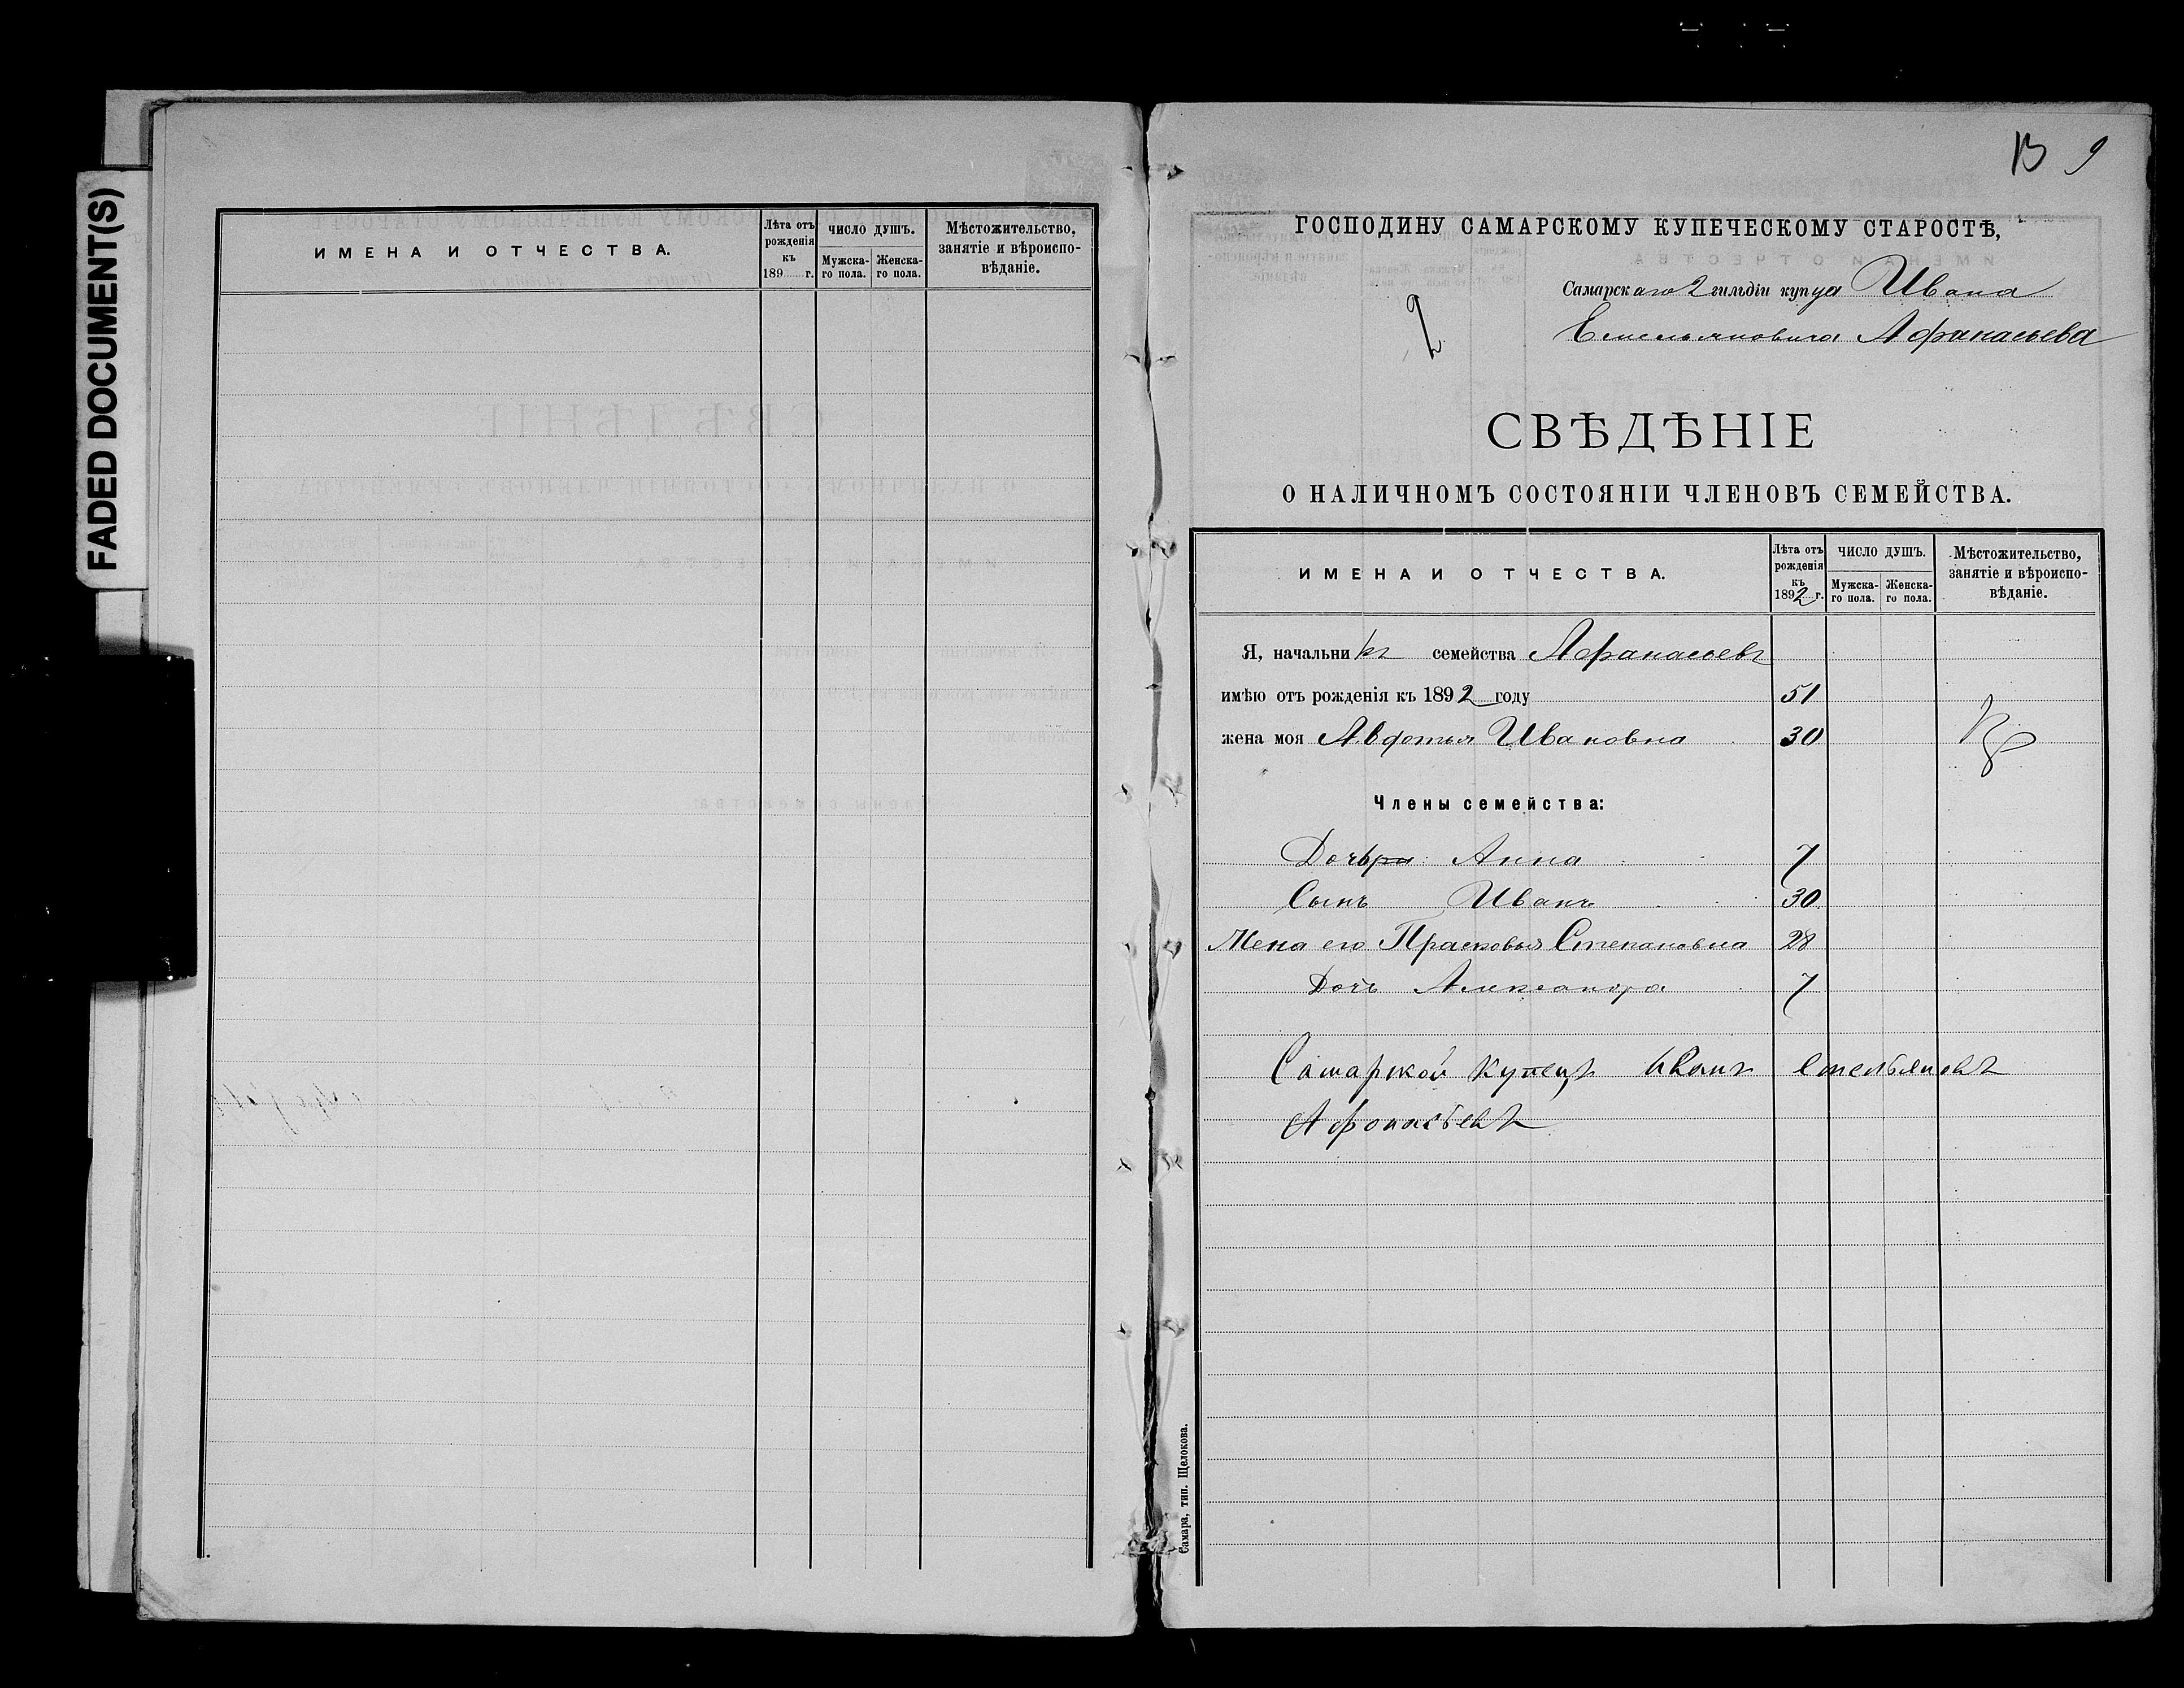 FADED DOCUMENT(S)
ИМЕНА И ОТЧЕСТВА.
Лѣта отъ рожденія къ 189 г.
ЧИСЛО ДУШЪ.
Мужска-го пола.
Женска-го пола.
Мѣстожительство, занятіе и вѣроиспо-вѣданіе.
13 9
ГОСПОДИНУ САМАРСКОМУ КУПЕЧЕСКОМУ СТАРОСТѢ,
Самарскаго 2 гильдіи купца Ивана
Емельяновича Афанасьева
2
СВѢДѢНІЕ
О НАЛИЧНОМЪ СОСТОЯНІИ ЧЛЕНОВЪ СЕМЕЙСТВА.
ИМЕНА И ОТЧЕСТВА.
Лѣта отъ рожденія къ 1892 г.
ЧИСЛО ДУШЪ.
Мужска-го пола.
Женска-го пола.
Мѣстожительство, занятіе и вѣроиспо-вѣданіе.
Я, начальникъ семейства Афанасьевъ
имѣю отъ рожденія къ 1892 году 51
жена моя Авдотья Ивановна 30
Члены семейства:
Дочь Анна 7
Сынъ Иванъ 30
Жена его Прасковья Степановна 28
Дочь Александра 7
Самарской купецъ Иванъ Емельяновъ
Афонасьевъ
Самара, тип. Щелокова.